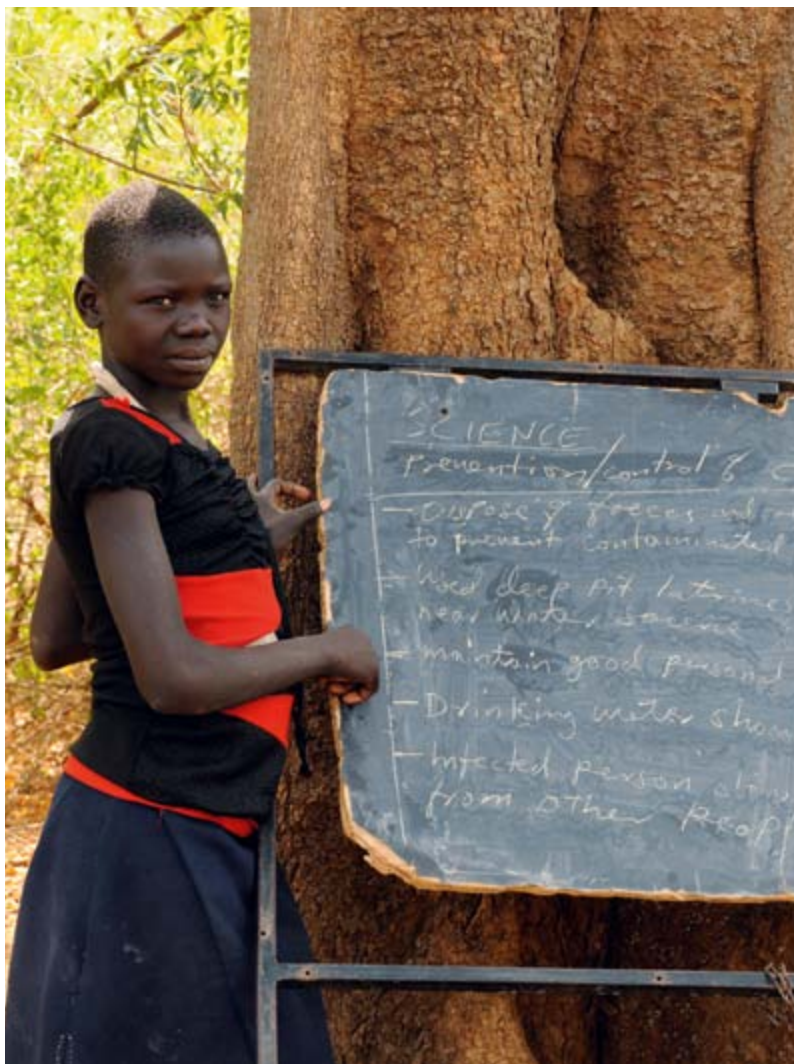 SCIENCE
Prevention/control of C
- Dispose of faeces and
to prevent contaminated
- Used deep pit latrines
near water source
- maintain good personal
- Drinking water shou
- Infected person
from other Peop